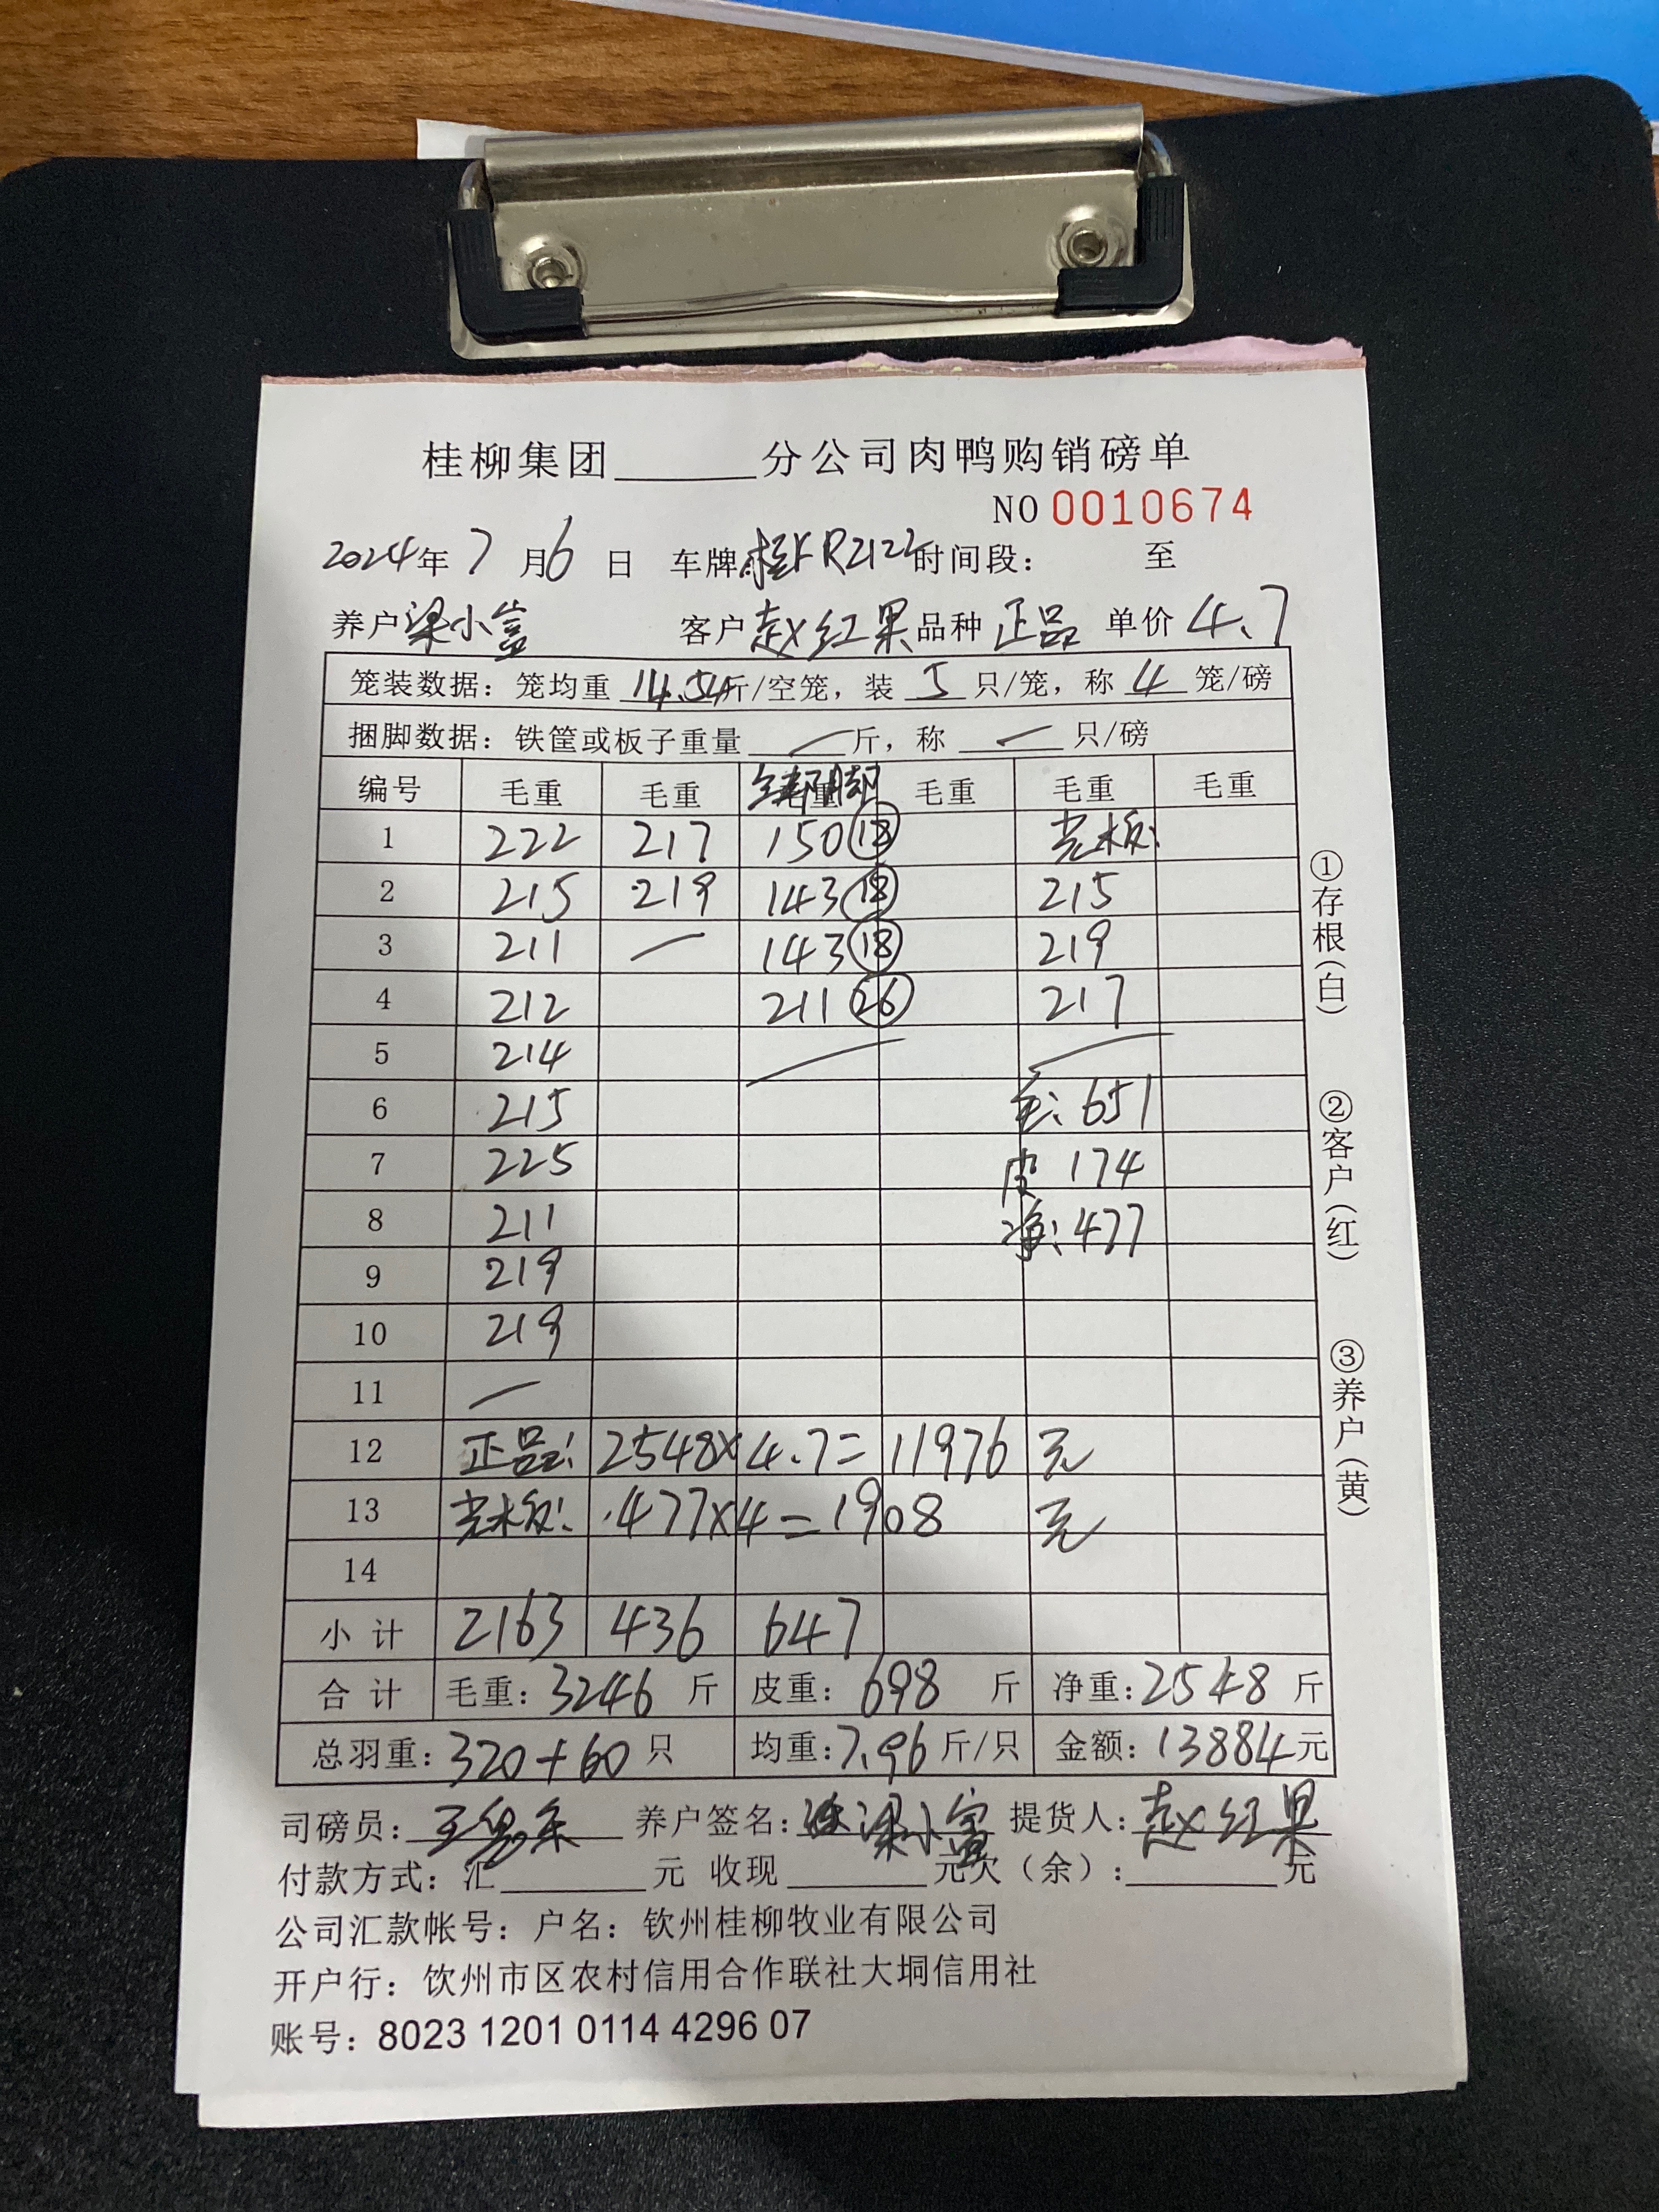 桂柳集团______分公司肉鸭购销磅单
NO 0010674
2024年 7 月 6 日 车牌 桂KR2122 时间段： 至
养户 梁小富 客户 赵红果 品种 正品 单价 4.7
笼装数据：笼均重 14.54 斤/空笼，装 5 只/笼，称 4 笼/磅
捆脚数据：铁筐或板子重量 — 斤，称 — 只/磅
编号 毛重 毛重 毛重 毛重 毛重 毛重
1 222 217 150 ⑱ 光板:
2 215 219 143 ⑱ 215
3 211 — 143 ⑱ 219
4 212 211 ㉖ 217
5 214 — —
6 215 毛: 651
7 225 皮 174
8 211 净: 477
9 219
10 219
11 —
12 正品: 2548×4.7=11976 元
13 光板: 477×4=1908 元
14
小计 2163 436 647
合计 毛重：3246 斤 皮重：698 斤 净重：2548 斤
总羽重：320+60 只 均重：7.96 斤/只 金额：13884 元
司磅员： 养户签名：梁小富 提货人：赵红果
付款方式：汇______元 收现______元欠（余）：______元
公司汇款帐号：户名：钦州桂柳牧业有限公司
开户行：钦州市区农村信用合作联社大垌信用社
账号：8023 1201 0114 4296 07
①存根（白）
②客户（红）
③养户（黄）